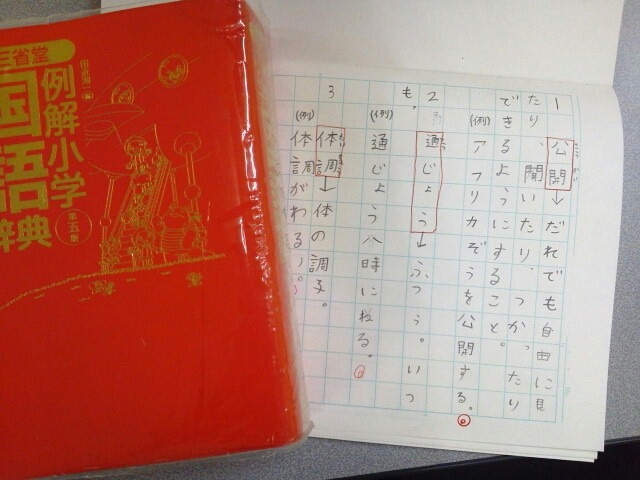 三省堂
例解小学
国語辞典
第五版
1 公開→だれでも自由に見
たり、聞いたり、つかったり
できるようにすること。
(例)アフリカぞうを公開する。
2 通じょう→ふつう。いつ
も。
(例)通じょう八時にねる。
3 体調→体の調子。
(例)体調がわるい。